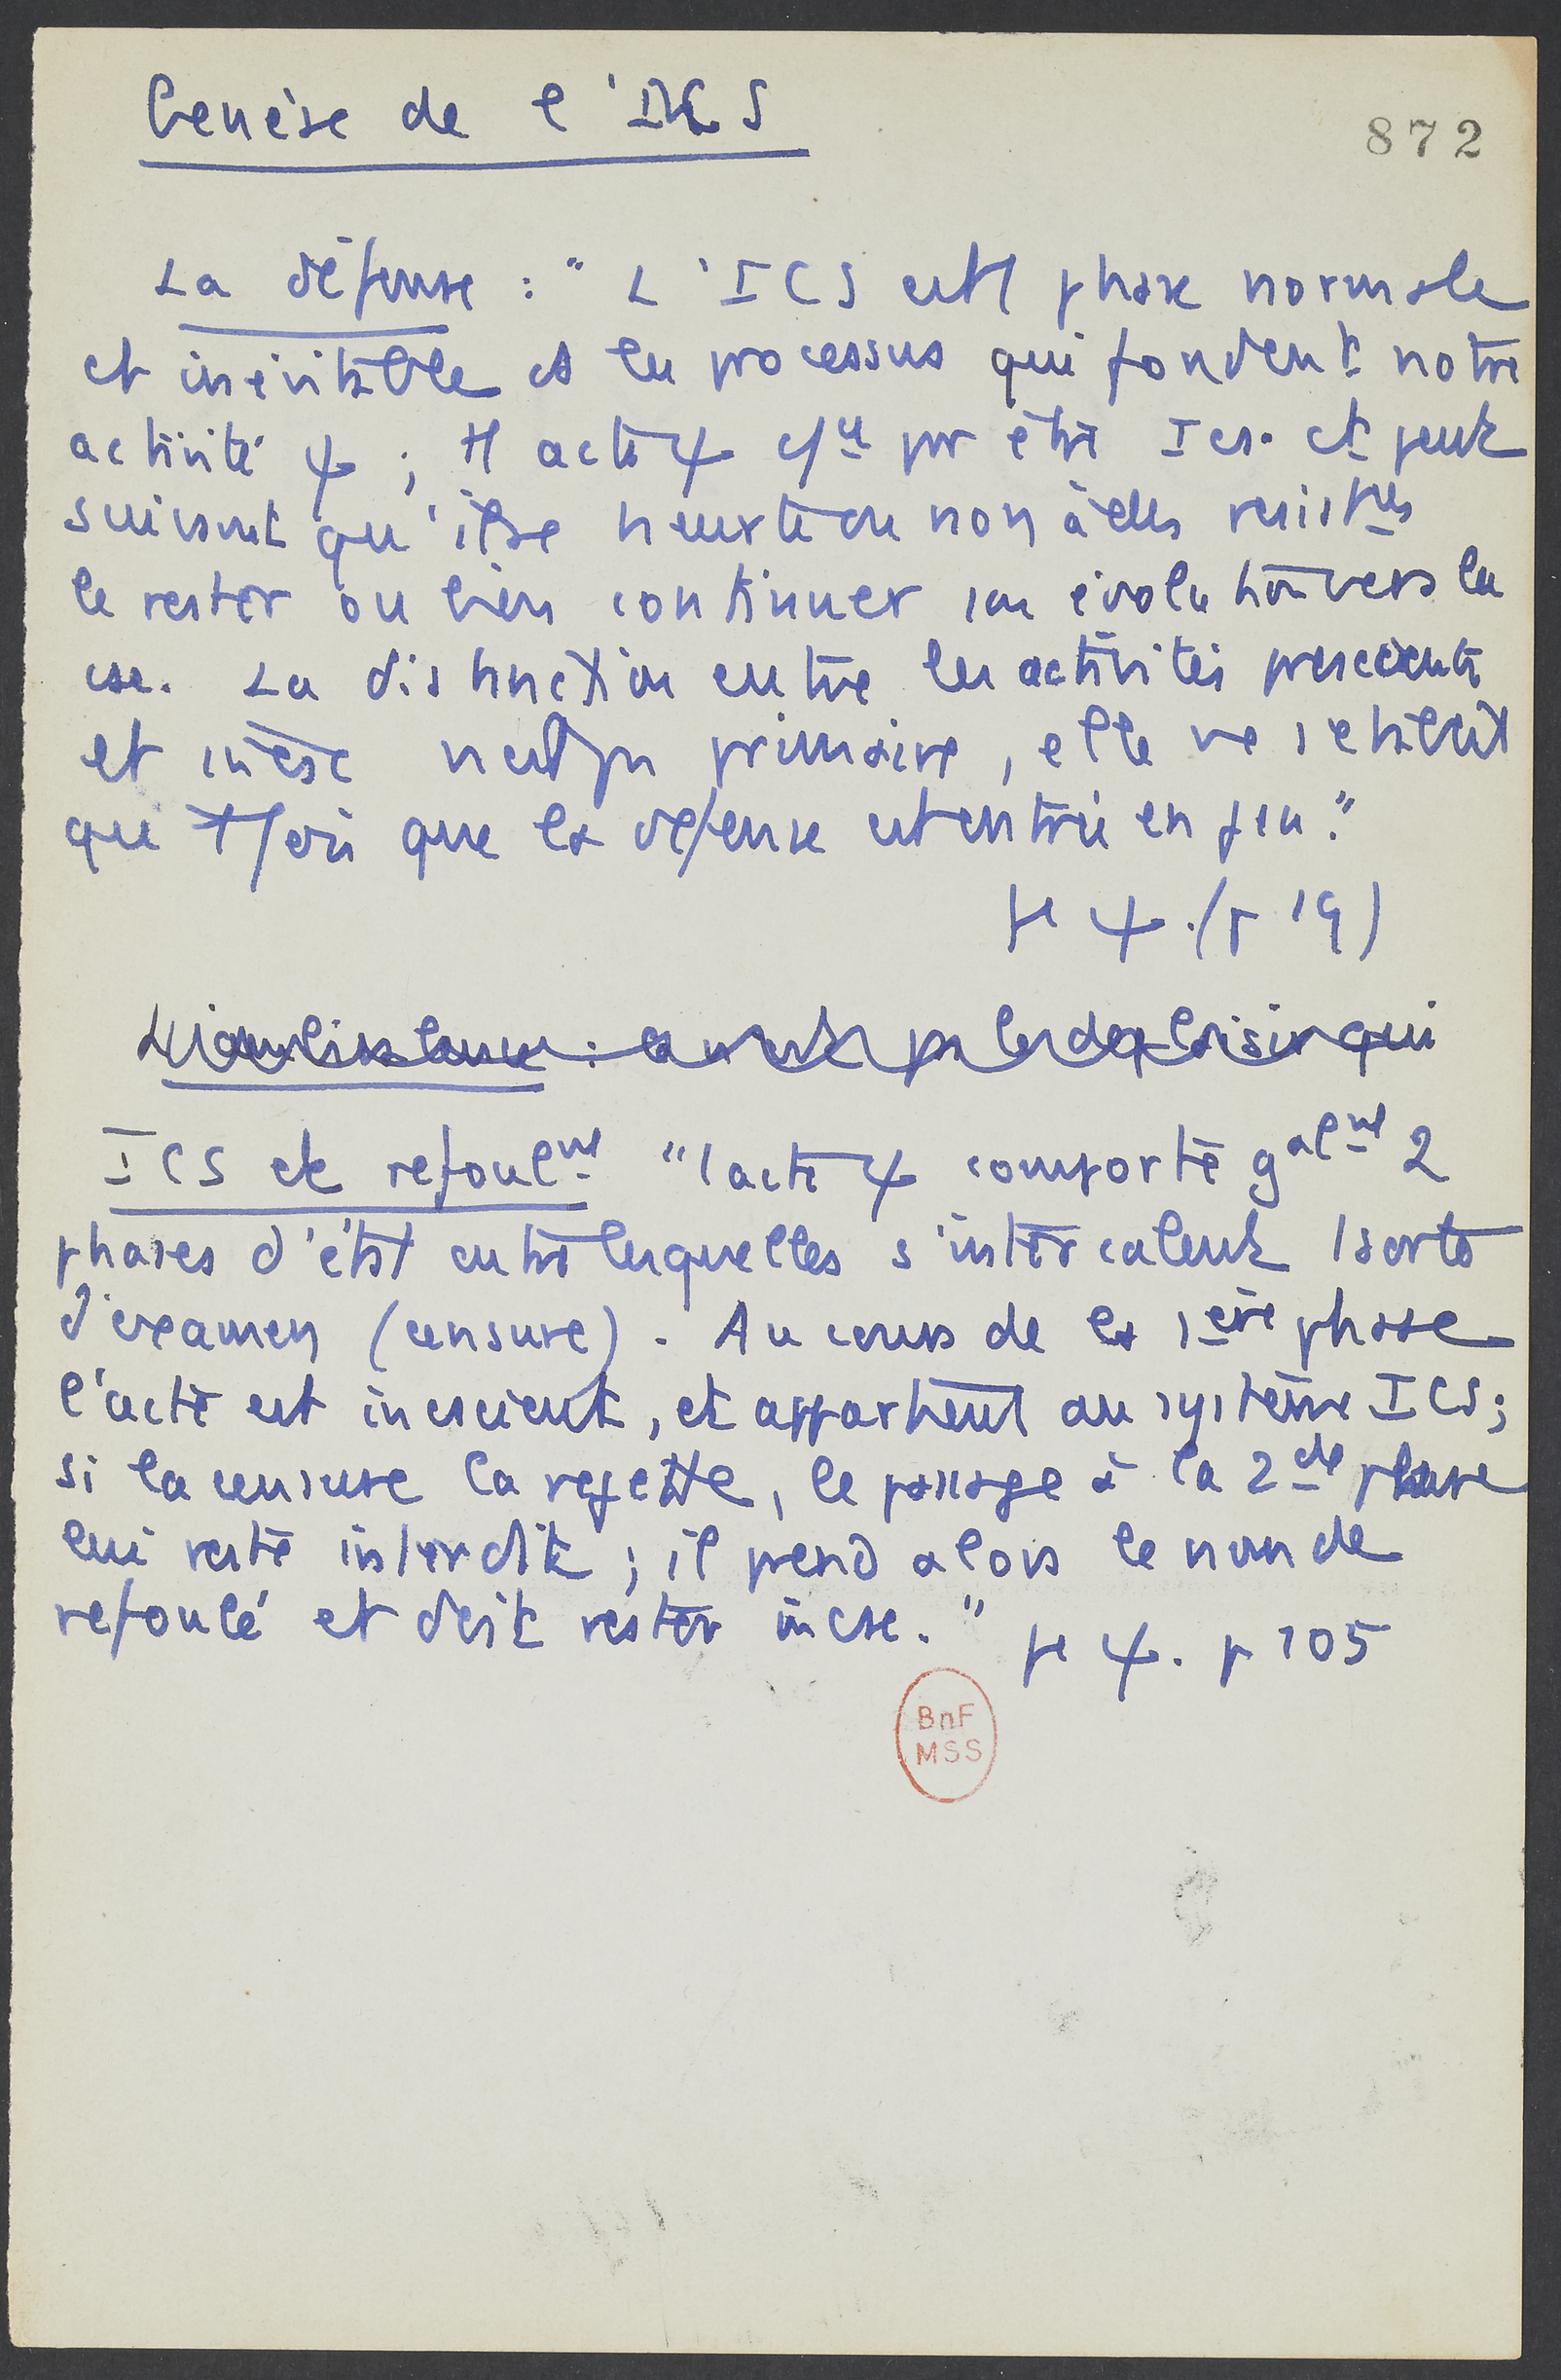 Genèse de l'ICS
872
La défense : " L'ICS est 1 phase normale
et inévitable ds les processus qui fondent notre
activité ψ ; tt acte ψ c/ce par être Ics. et peut
suivant qu'il se heurte ou non à des resistces
le rester ou bien continuer son évolution vers la
cse. La distinction entre les activités presccientes
et incse n'est pas primaire, elle ne s'établit
que
que la défense est entrée en jeu."
ψ. (p 19)
: par le deplaisir qui
ICS et le refoulmt "l'acte ψ comporte galmt 2
phases d'état entre lesquelles s'intercalent 1 sorte
d'examen (censure). Au cours de la 1ere phase
l'acte est inescient, et appartient au système ICS;
si la censure la rejette, le passage à la 2de phase
lui reste interdit ; il prend alors le nom de
refoulé et doit rester incse. "
ψ. p 105
BnF
MSS